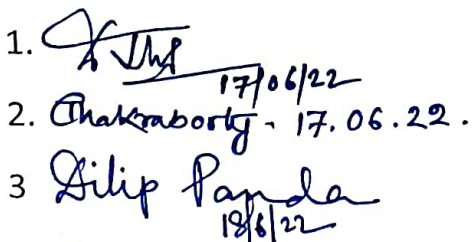 1.
17/06/22
2. Chakraborty - 17.06.22.
3 Dilip Panda
18/6/22